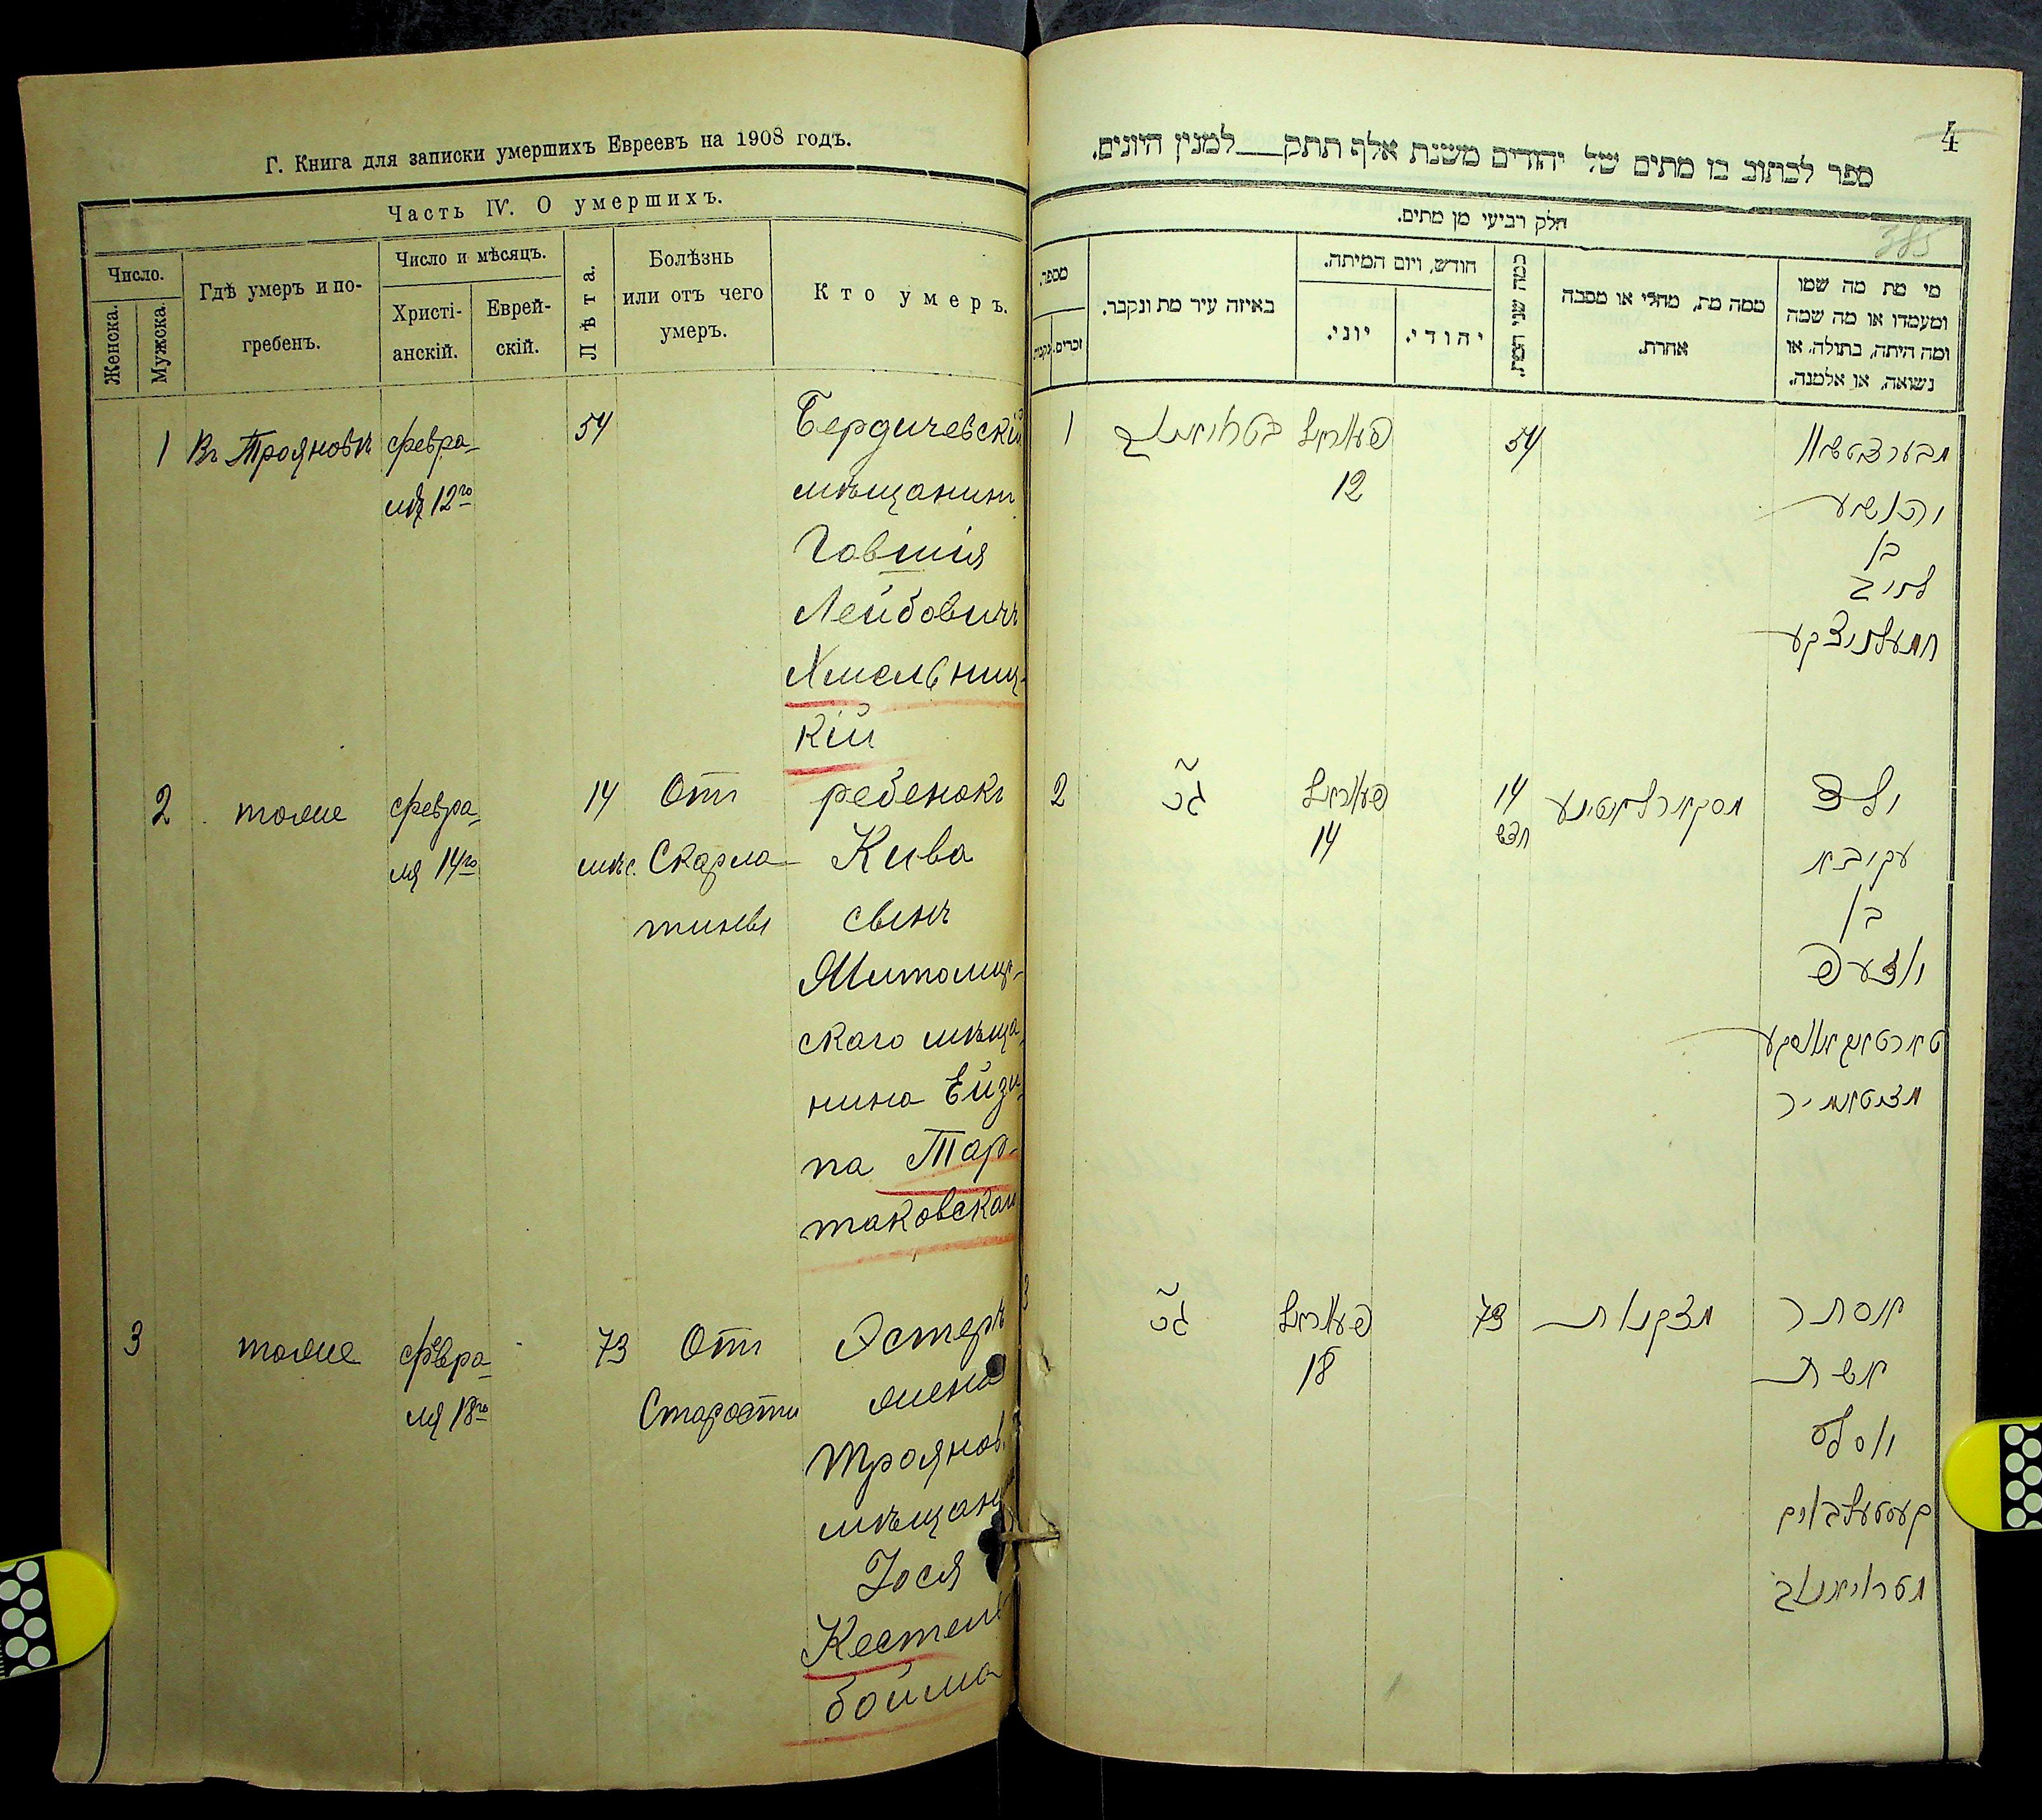 Г. Книга для записки умершихъ Евреевъ на 1908 годъ.
Часть IV. О умершихъ.
Число.
Женска.
Мужска.
Гдѣ умеръ и по-
гребенъ.
Число и мѣсяцъ.
Христі-
анскій.
Еврей-
скій.
Лѣта.
Болѣзнь
или отъ чего
умеръ.
Кто умеръ.
1 Въ Трояновѣ февра-
ля 12го
54
Бердичевскій
мѣщанинъ
Говшія
Лейбовичъ
Хмельниц-
кій
2 тоже февра-
ля 14го
14
мѣс.
Отъ
Скарла-
тины
ребенокъ
Кива
сынъ
Житомир-
скаго мѣща-
нина Ейзи-
па Тар-
таковскаго
3 тоже февра-
ля 18го
73
Отъ
Старости
Эстеръ
жена
Троянов
мѣщан
Іося
Кестель
бойма
4
ספר לכתוב בו מתים של יהודים משנת אלף תתק___למנין היונים.
385
חלק רביעי מן מתים.
מספר.
זכרים.
נקבות.
באיזה עיר מת ונקבר.
חודש, ויום המיתה.
יוני.
יהודי.
כמה שני המת.
ממה מת, מחלי או מסבה
אחרת.
מי מת מה שמו
ומעמדו או מה שמה
ומה היתה, בתולה, או
נשואה, או אלמנה.
1
פעווראל
12
54
יהושע
בן
לייב
חמעלניצקע
2
גכ
פעווראל
14
14
חדש
מסקארלאטינע
ילד
עקיבא
בן
יאזעפ
טארטאקאווסקע
מזיטאמיר
3
גכ
פעווראל
18
73
מזקנות
אסתר
אשת
יאסל
קעסטעלבוים
מטרויאנוב